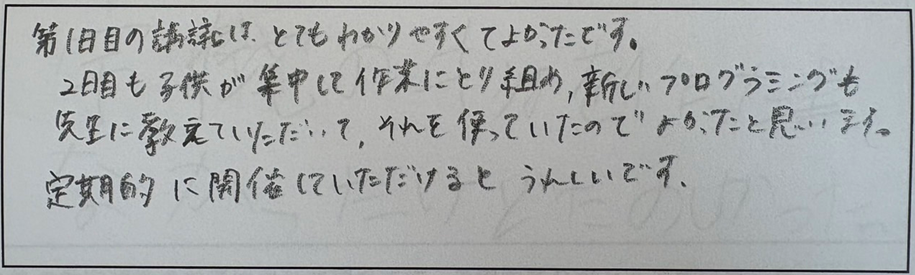 第1日目の講議は、とてもわかりやすくてよかったです。
2日目も子供が集中して作業にとり組め、新しいプログラミングも
先生に教えていただいて、それを使っていたのでよかったと思います。
定期的に開催していただけるとうれしいです。